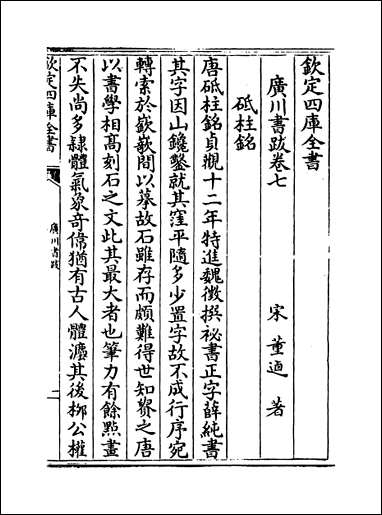 欽定四庫全書
廣川書跋卷七
宋 董逌 著
砥柱銘
唐砥柱銘貞觀十二年特進魏徵撰祕書正字薛純書
其字因山鑱鑿就其窪平隨多少置字故不成行序宛
轉索於嶔嶔間以摹故石雖存而頗難得世知贅之唐
以書學相髙刻石之文此其最大者也筆力有餘㸃畫
不失尚多隸體氣象竒偉猶有古人體灋其後栁公權
欽定四庫全書
廣川書跋
二